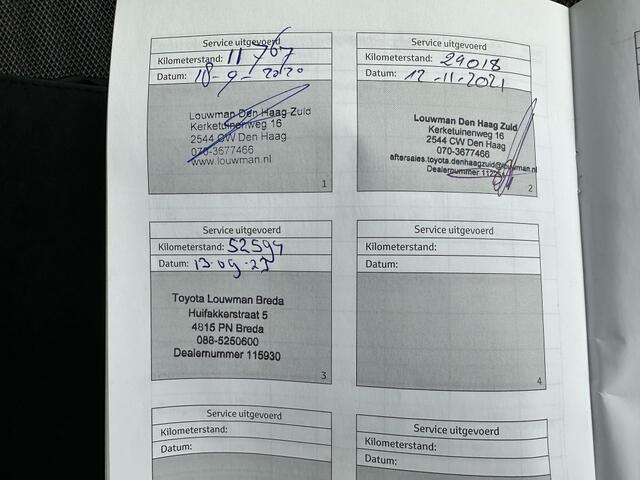 Service uitgevoerd
Kilometerstand: 11767
Datum: 18-9-2020
Louwman Den Haag Zuid
Kerketuinenweg 16
2544 CW Den Haag
070-3677466
www.louwman.nl
1
Service uitgevoerd
Kilometerstand: 29018
Datum: 12-11-2021
Louwman Den Haag Zuid
Kerketuinenweg 16
2544 CW Den Haag
070-3677466
aftersales.toyota.denhaagzuid@louwman.nl
Dealernummer
2
Service uitgevoerd
Kilometerstand: 52594
Datum: 13-09-23
Toyota Louwman Breda
Huifakkerstraat 5
4815 PN Breda
088-5250600
Dealernummer 115930
3
Service uitgevoerd
Kilometerstand:
Datum:
4
Service uitgevoerd
Kilometerstand:
Datum:
Service uitgevoerd
Kilometerstand:
Datum: